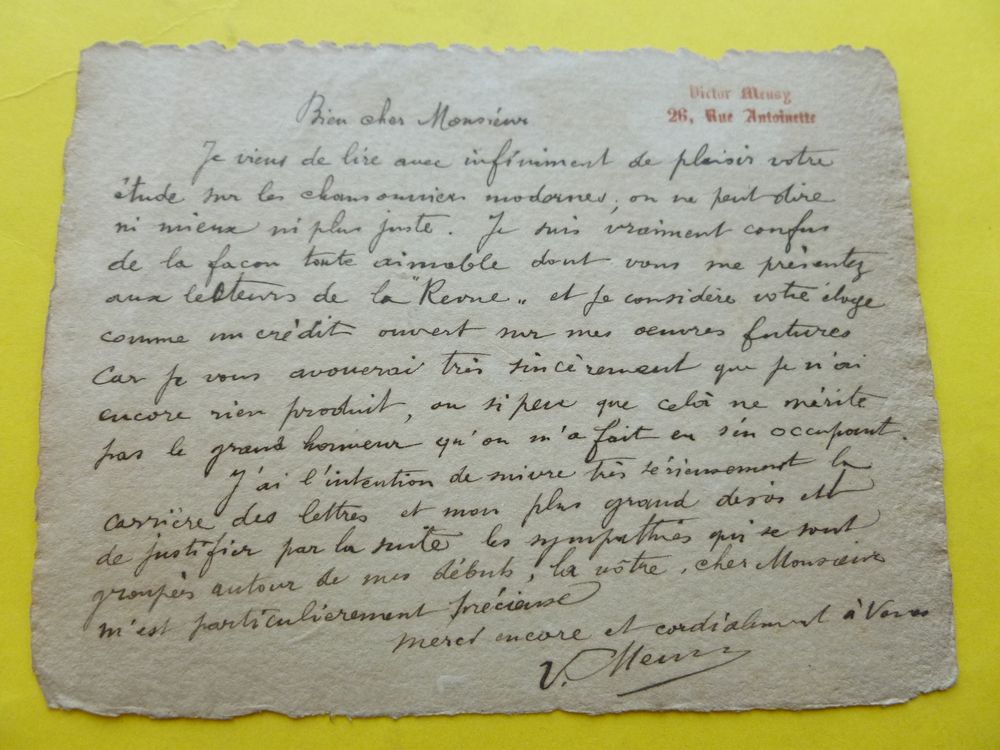 Victor Meusy
26, Rue Antoinette
Bien cher Monsieur
Je viens de lire avec infiniment de plaisir votre
étude sur les chansonniers modernes, on ne peut dire
ni mieux ni plus juste. Je suis vraiment confus
de la façon toute aimable dont vous me présentez
aux lecteurs de la "Revue" et je considère votre éloge
comme un crédit ouvert sur mes oeuvres futures
Car je vous avouerai très sincèrement que je n'ai
encore rien produit, ou si peu que celà ne mérite
pas le grand honneur qu'on m'a fait en s'en occupant.
J'ai l'intention de suivre très sérieusement la
carrière des lettres et mon plus grand désir est
de justifier par la suite les sympathies qui se sont
groupées autour de mes débuts, la vôtre, cher Monsieur
m'est particulièrement précieuse
Merci encore et cordialement à Vous
V. Meusy